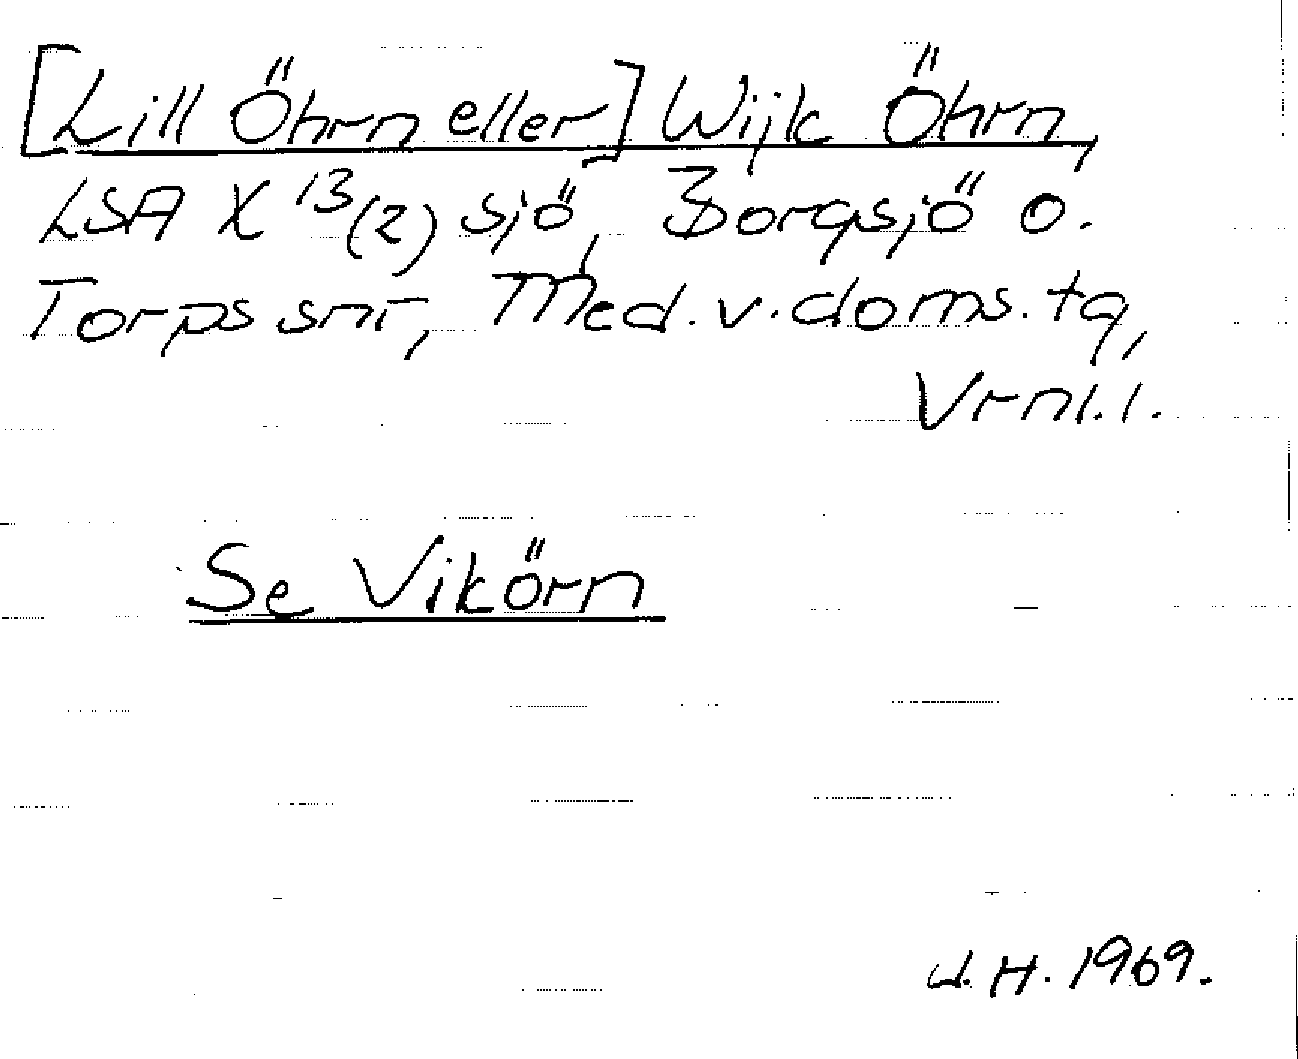 [Lill Öhrn eller] Wijk Öhrn,
LSA X 13(2) sjö, Borgsjö o.
Torps snr, Med. v. doms. tg,
Vrnl. l.
Se Vikörn
J. H. 1969.